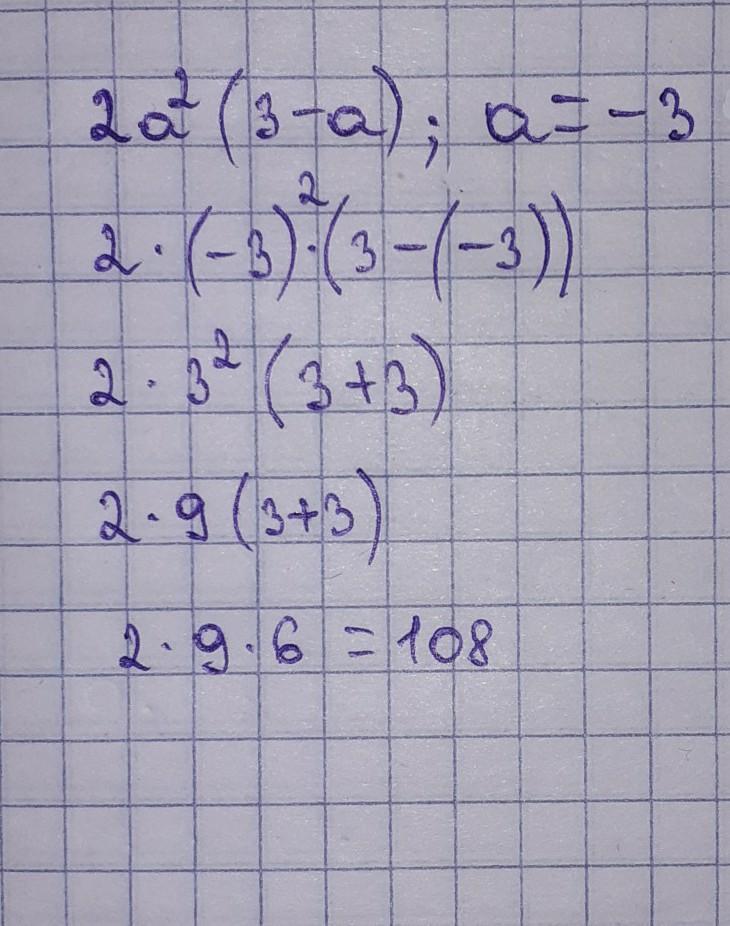 2a² (3-a); a = -3
2 · (-3)² · (3-(-3))
2 · 3² (3+3)
2 · 9 (3+3)
2 · 9 · 6 = 108